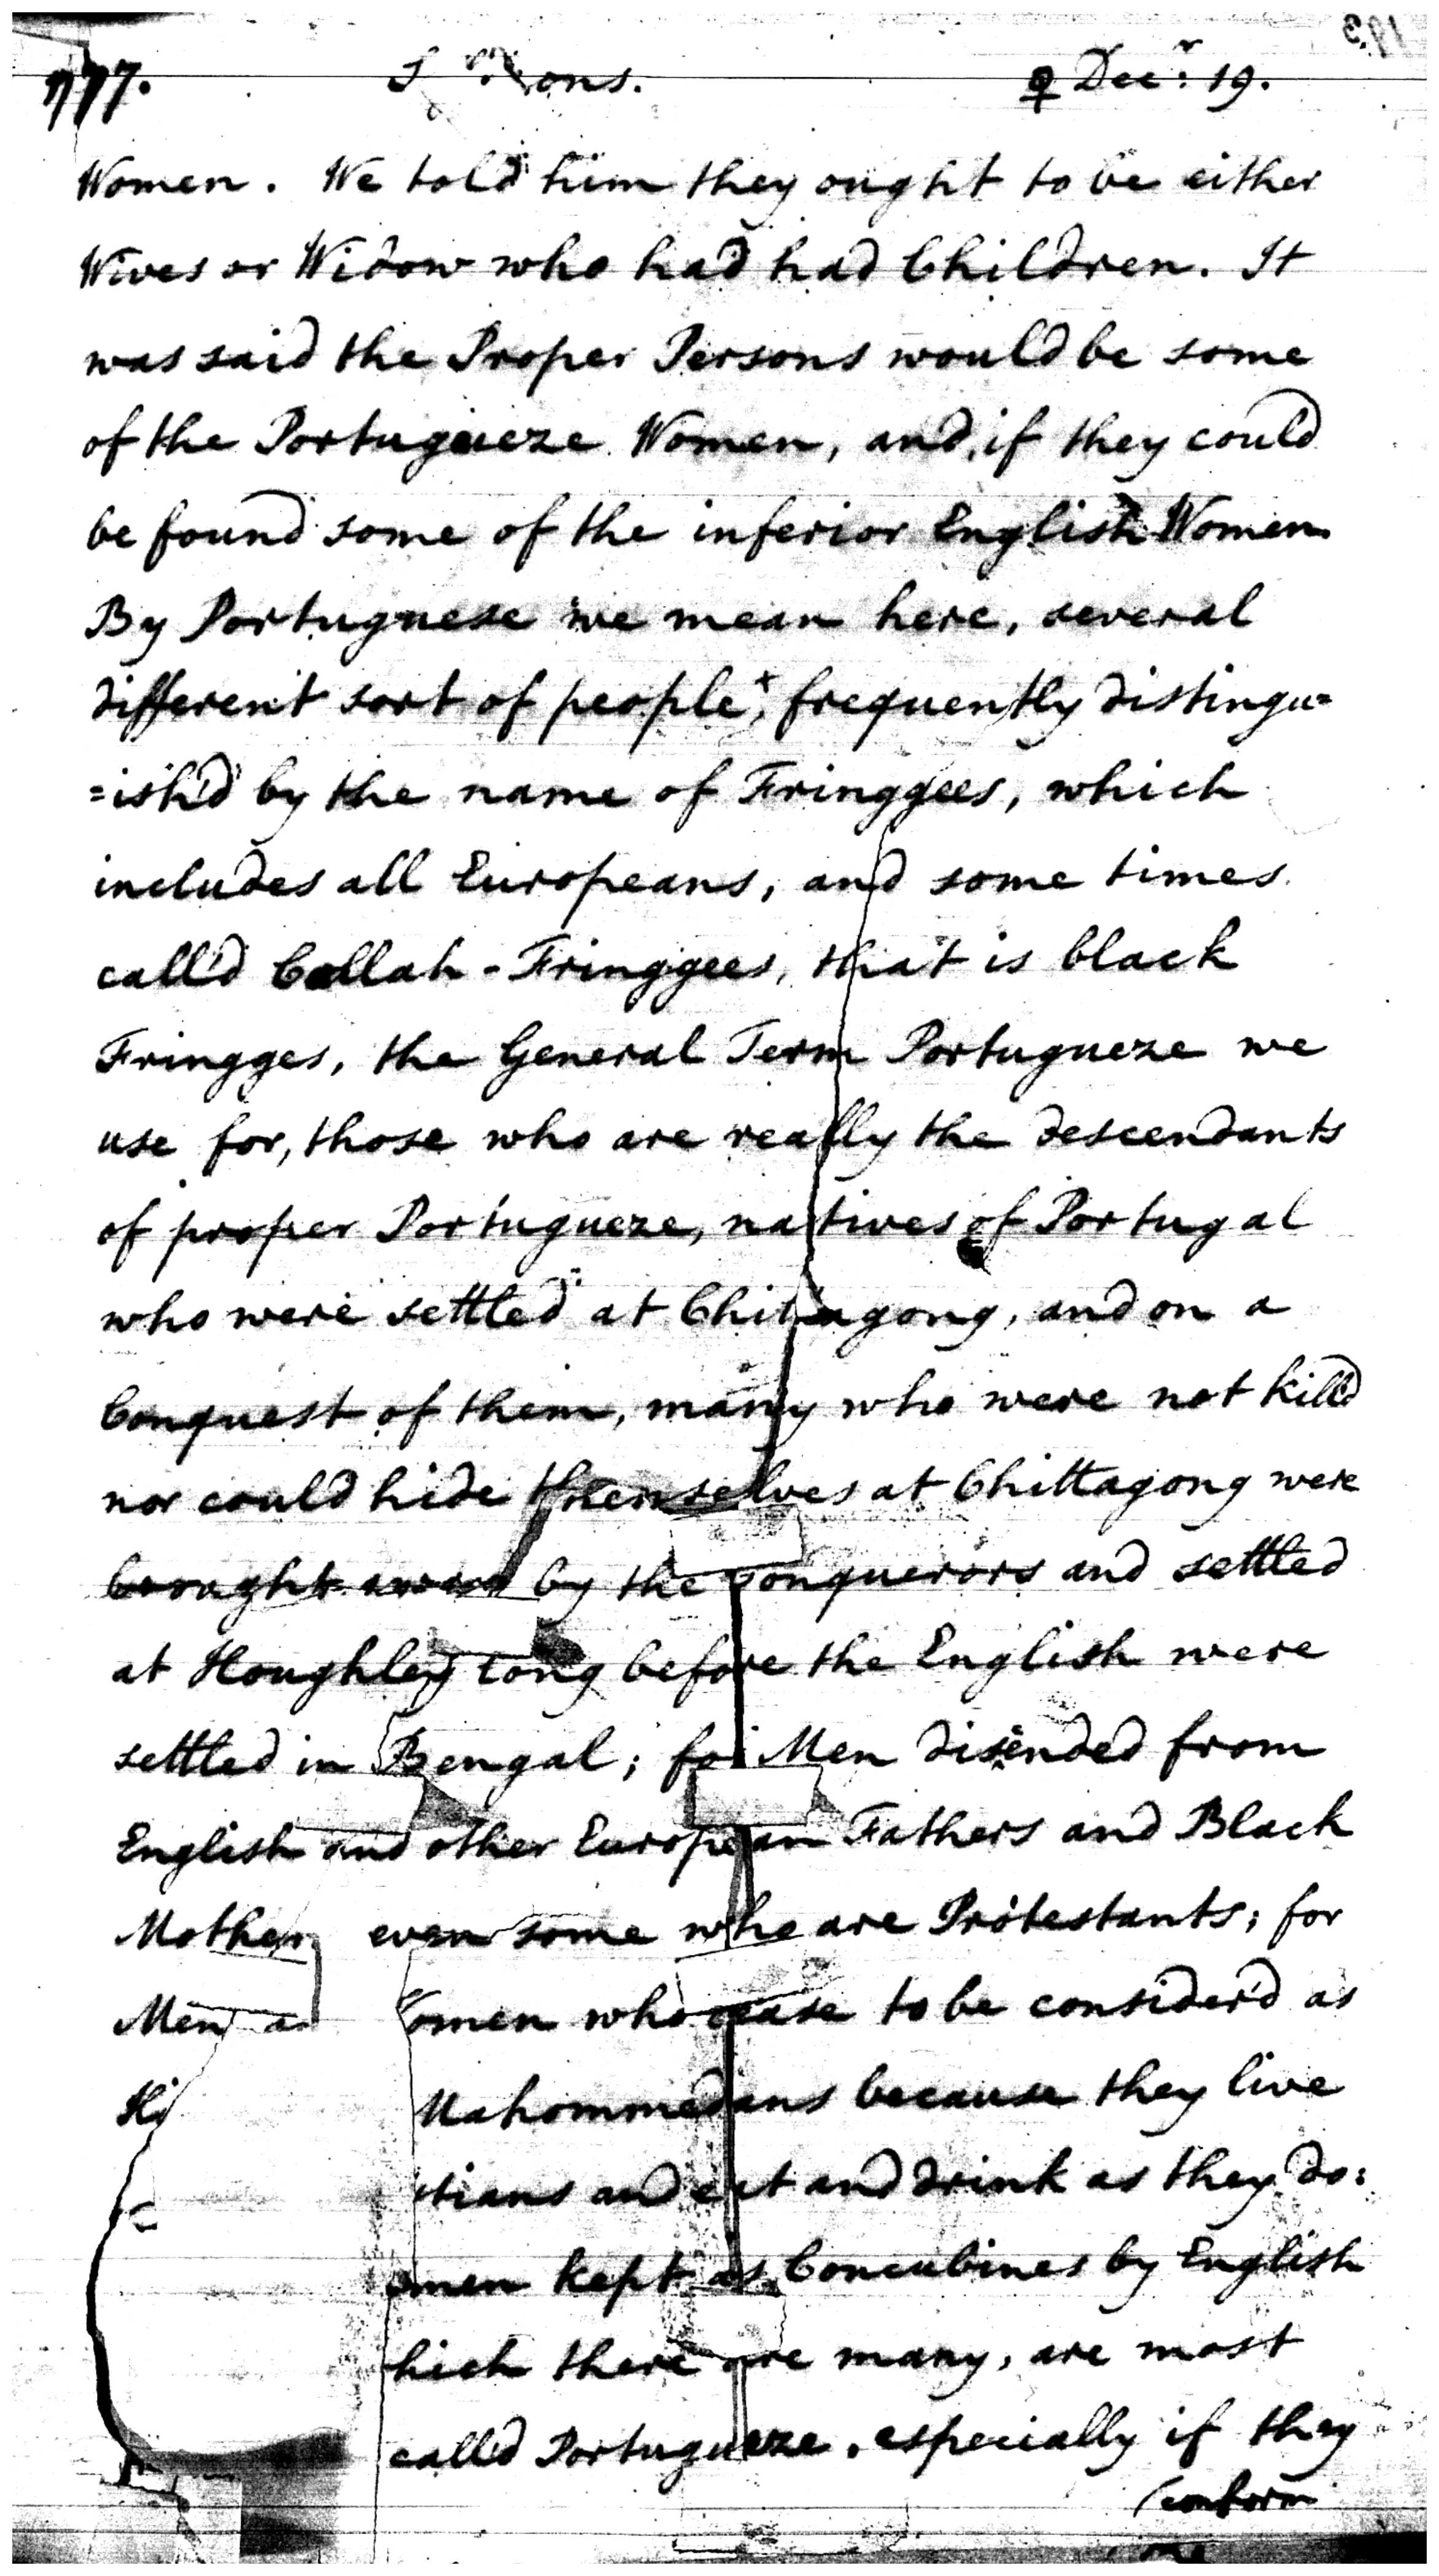 777. ons. ♀ Decr: 19.
Women. We told him they ought to be either
Wives or Widow who had had Children. It
was said the Proper Persons would be some
of the Portugueze Women, and, if they could
be found some of the inferior English Women.
By Portuguese we mean here, several
different sort of people+, frequently distingu=
=ish'd by the name of Fringgees, which
includes all Europeans, and some times
call'd Collah-Fringgees, that is black
Fringges, the General Term Portugueze we
use for, those who are really the descendants
of proper Portugueze, natives of Portugal
who were settled at Chittagong, and on a
Conquest of them, many who were not kill'd
nor could hide themselves at Chittagong were
brought away by the Conquerors and settled
at Houghley long before the English were
settled in Bengal; for Men disended from
English and other European Fathers and Black
Mother even some who are Protestants; for
Men a omen who cease to be consider'd as
Hi Mahommedans because they live
tians and eat and drink as they do:
omen kept as Concubines by English
hich there are many, are most
call'd Portugueze, especially if they
(conform